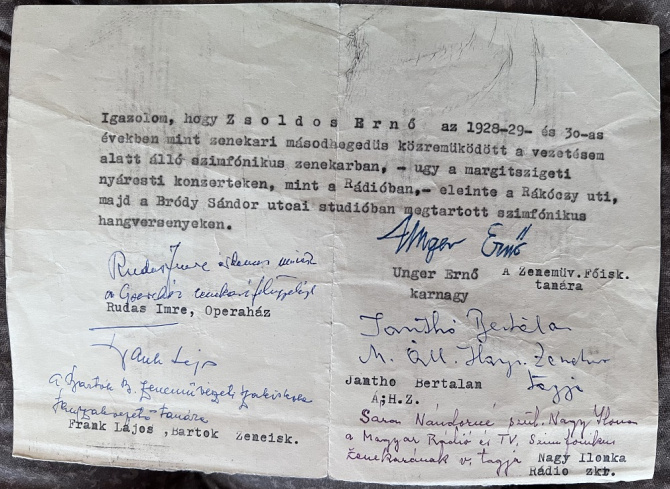 Igazolom, hogy Zsoldos Ernő az 1928-29- és 30-as
években mint zenekari másodhegedüs közremüködött a vezetésem
alatt álló szimfónikus zenekarban, - ugy a margitszigeti
nyáresti konzerteken, mint a Rádióban,- eleinte a Rákóczy uti,
majd a Bródy Sándor utcai studióban megtartott szimfónikus
hangversenyeken.
Unger Ernő
Unger Ernő A Zeneműv.Főisk.
karnagy tanára
Rudas Imre
Rudas Imre, Operaház
Jantho Bertalan
M. Áll. Hang. Zenekar
tagja
Jantho Bertalan
Á.H.Z.
Frank Lajos
a Bartok B. Zeneművészeti Szakiskola
tanára
Frank Lajos ,Bartok Zeneisk.
Saron Nándorné szül. Nagy Ilona
a Magyar Rádió és TV. Szimfónikus
Zenekarának v. tagja
Nagy Ilonka
Rádio zkr.